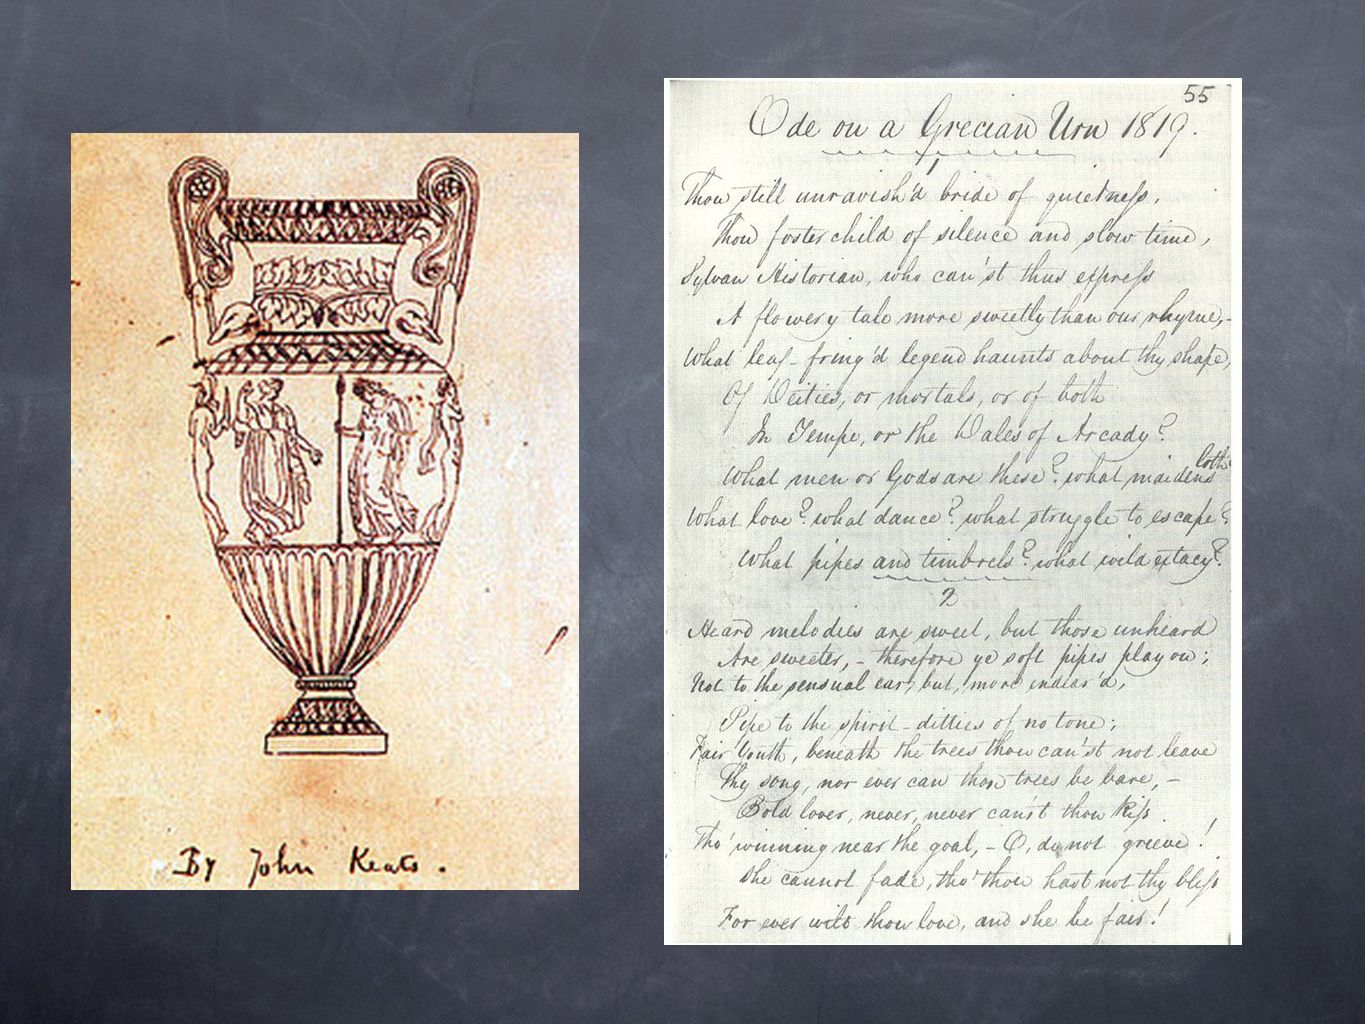 By John Keats.
55
Ode on a Grecian Urn 1819.
1
Thou still unravish'd bride of quietness,
Thou foster child of silence and slow time,
Sylvan Historian, who can'st thus express
A flowery tale more sweetly than our rhyme,-
What leaf-fring'd legend haunts about thy shape,
Of Deities, or mortals, or of both
In Tempe, or the Dales of Arcady?
What men or Gods are these? what maidens loth?
What love? what dance? what struggle to escape?
What pipes and timbrels? what wild extacy?
2
Heard melodies are sweet, but those unheard
Are sweeter,- therefore ye soft pipes play on;
Not to the sensual ear, but, more endear'd,
Pipe to the spirit-ditties of no tone;
Fair Youth, beneath the trees thou can'st not leave
Thy song, nor ever can those trees be bare,-
Bold lover, never, never can'st thou kiss
Tho' winning near the goal,- O, do not greeve!
She cannot fade, tho' thou hast not thy bliss
For ever wilt thou love, and she be fair!